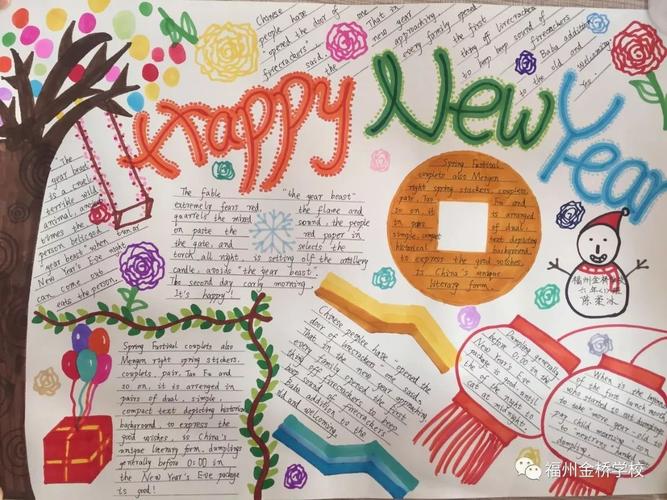 Chinese
people have
opened the door of one
firecrackers said.
That in
new year
approaching
every family opened
the first
thing off firecrackers
to beep beep sound of
firecrackers
Baba addition
to the old and
welcoming.
Happy New Year
The
year beast
is a cruel,
terrible wild
animal, ancient
times the
person believed
"year beast" when
New Year's Eve night
can come out
eats the person.
The fable "the year beast"
extremely fears red, the flame and
quarrels the mixed sound, the people
on paste the red paper in
the gate, and selects the
torch all night, is setting off the artillery
candle, avoids "the year beast".
The second day early morning.
It's happy!
Spring Furtival
couplets also Mengen
right spring stickers, couplets,
pair, Tao Fu and
so on, it is arranged
in pairs of dual,
simple, compact text depicting
historical background,
to express the good wishes,
is China's unique
literary form.
福州金桥学校
六年
陈柔冰
Spring Furtival couplets also
Mengen right spring stickers,
couplets, pair, Tao Fu and
so on, it is arranged in
pairs of dual, simple,
compact text depicting historical
background, to express the
good wishes, is China's
unique literary form, dumplings
generally before 00:00 in
the New Year's Eve package
is good!
Chinese people have opened the
door of firecrackers one said.
That in new year approaching
every family opened the first
thing off firecrackers to beep
beep sound of firecrackers
Baba addition to the
old and welcoming.
Dumpling generally
before 0:00 in the
New Year's Eve
package is good until
the of the night to
eat at midnight.
When is the
who started to eat dumplings
to take more year-old to
pay child morning son
to
dumpling
福州金桥学校